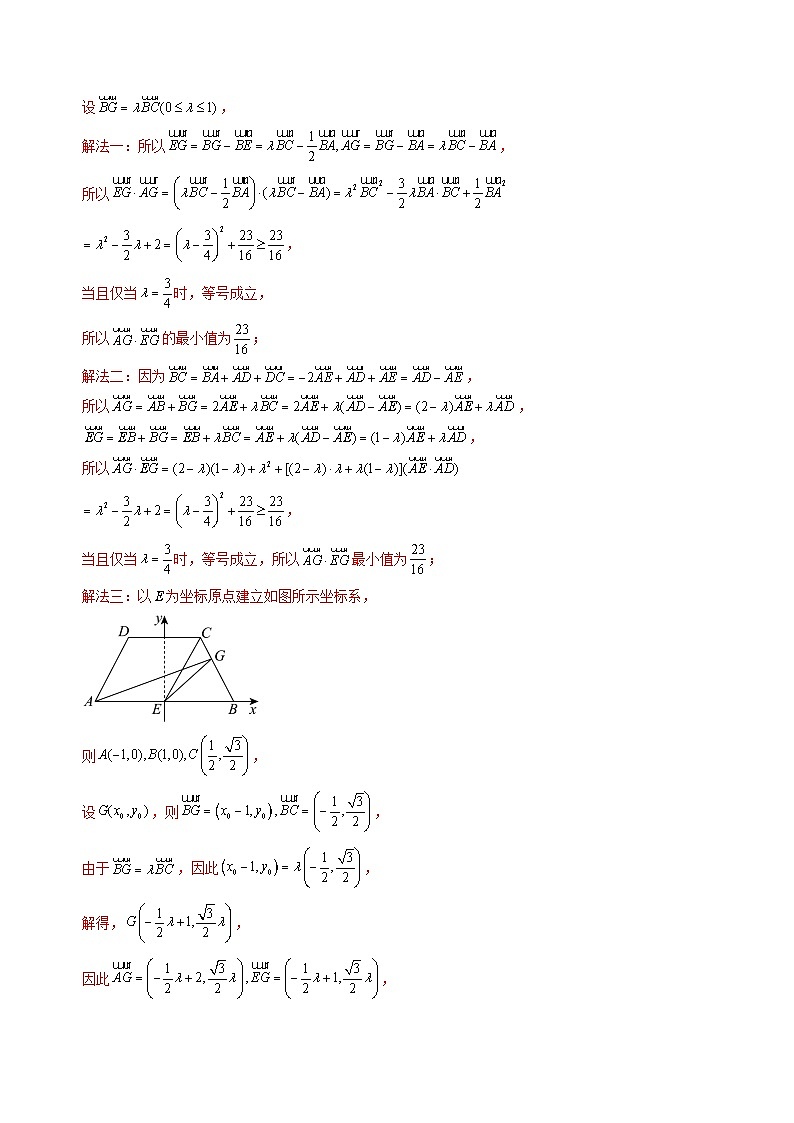 设 $\overrightarrow{BG}=\lambda\overrightarrow{BC}(0\le\lambda\le1)$，
解法一：所以 $\overrightarrow{EG}=\overrightarrow{BG}-\overrightarrow{BE}=\lambda\overrightarrow{BC}-\frac{1}{2}\overrightarrow{BA},\overrightarrow{AG}=\overrightarrow{BG}-\overrightarrow{BA}=\lambda\overrightarrow{BC}-\overrightarrow{BA}$，
所以 $\overrightarrow{EG}\cdot\overrightarrow{AG}=\left(\lambda\overrightarrow{BC}-\frac{1}{2}\overrightarrow{BA}\right)\cdot(\lambda\overrightarrow{BC}-\overrightarrow{BA})=\lambda^2\overrightarrow{BC}^2-\frac{3}{2}\lambda\overrightarrow{BA}\cdot\overrightarrow{BC}+\frac{1}{2}\overrightarrow{BA}^2$
$=\lambda^2-\frac{3}{2}\lambda+2=\left(\lambda-\frac{3}{4}\right)^2+\frac{23}{16}\ge\frac{23}{16}$，
当且仅当 $\lambda=\frac{3}{4}$ 时，等号成立，
所以 $\overrightarrow{AG}\cdot\overrightarrow{EG}$ 的最小值为 $\frac{23}{16}$；
解法二：因为 $\overrightarrow{BC}=\overrightarrow{BA}+\overrightarrow{AD}+\overrightarrow{DC}=-2\overrightarrow{AE}+\overrightarrow{AD}+\overrightarrow{AE}=\overrightarrow{AD}-\overrightarrow{AE}$，
所以 $\overrightarrow{AG}=\overrightarrow{AB}+\overrightarrow{BG}=2\overrightarrow{AE}+\lambda\overrightarrow{BC}=2\overrightarrow{AE}+\lambda(\overrightarrow{AD}-\overrightarrow{AE})=(2-\lambda)\overrightarrow{AE}+\lambda\overrightarrow{AD}$，
$\overrightarrow{EG}=\overrightarrow{EB}+\overrightarrow{BG}=\overrightarrow{EB}+\lambda\overrightarrow{BC}=\overrightarrow{AE}+\lambda(\overrightarrow{AD}-\overrightarrow{AE})=(1-\lambda)\overrightarrow{AE}+\lambda\overrightarrow{AD}$，
所以 $\overrightarrow{AG}\cdot\overrightarrow{EG}=(2-\lambda)(1-\lambda)+\lambda^2+[(2-\lambda)\cdot\lambda+\lambda(1-\lambda)](\overrightarrow{AE}\cdot\overrightarrow{AD})$
$=\lambda^2-\frac{3}{2}\lambda+2=\left(\lambda-\frac{3}{4}\right)^2+\frac{23}{16}\ge\frac{23}{16}$，
当且仅当 $\lambda=\frac{3}{4}$ 时，等号成立，所以 $\overrightarrow{AG}\cdot\overrightarrow{EG}$ 最小值为 $\frac{23}{16}$；
解法三：以 E 为坐标原点建立如图所示坐标系，
y
D
C
G
A
E
B
x
则 $A(-1,0),B(1,0),C\left(\frac{1}{2},\frac{\sqrt{3}}{2}\right)$，
设 $G(x_0,y_0)$，则 $\overrightarrow{BG}=(x_0-1,y_0),\overrightarrow{BC}=\left(-\frac{1}{2},\frac{\sqrt{3}}{2}\right)$，
由于 $\overrightarrow{BG}=\lambda\overrightarrow{BC}$，因此 $(x_0-1,y_0)=\lambda\left(-\frac{1}{2},\frac{\sqrt{3}}{2}\right)$，
解得，$G\left(-\frac{1}{2}\lambda+1,\frac{\sqrt{3}}{2}\lambda\right)$，
因此 $\overrightarrow{AG}=\left(-\frac{1}{2}\lambda+2,\frac{\sqrt{3}}{2}\lambda\right),\overrightarrow{EG}=\left(-\frac{1}{2}\lambda+1,\frac{\sqrt{3}}{2}\lambda\right)$，